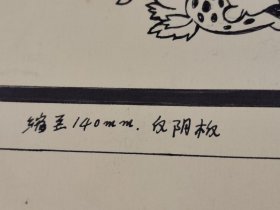 缩至140mm.仅阴板